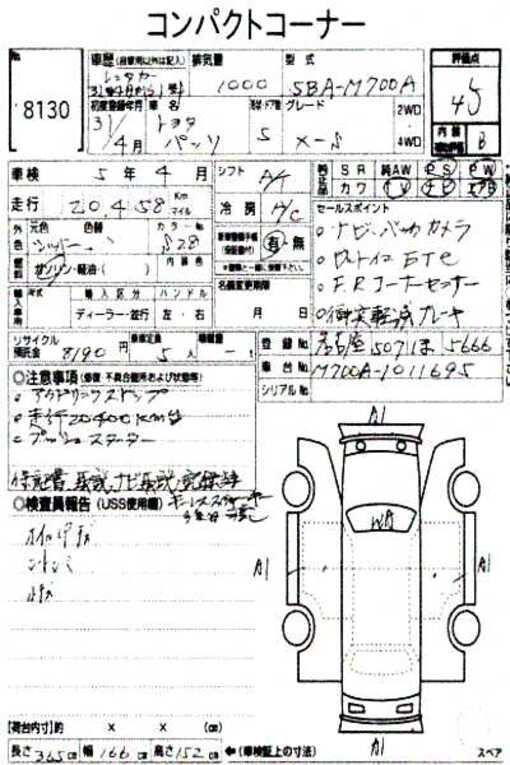 コンパクトコーナー
No 8130
車歴 (自家用以外は記入) 排気量 型式
レンタカー 1000 5BA-M700A
初度登録年月 車名 形状・ドア数 グレード
31/4月 トヨタ パッソ 5 X-S
2WD・4WD
評価点
4.5
内装 B
車検 5年4月
シフト A/T
走行 20,458 Km マイル
冷房 A/C
SR 純AW PS PW
カワ TV ナビ エアB
外色 元色 色替 カラーNo
シルバー S28
燃料 ガソリン・軽油・( ) 内装色
有・無
名義変更期限 月 日
セールスポイント
○ナビ、バックカメラ
○ビルトインETC
○F.Rコーナーセンサー
○衝突軽減ブレーキ
輸入車用 年式 輸入区分 ハンドル
ディーラー・並行 左・右
リサイクル預託金 8190円 乗車定員 5人 積載量 -t
登録No 名古屋 507 ほ 5666
車台No M700A-1011695
シリアルNo
○注意事項 (修復・不具合箇所および状態等)
○アイドリングストップ
○走行20400km台
○プッシュスターター
保証書、取説、ナビ取説、記録簿
○検査員報告 (USS使用欄)
A1
WA
A1
A1
A1
【荷台内寸】約 × × (cm)
長さ 365 cm 幅 166 cm 高さ 152 cm ←(車検証上の寸法)
スペア